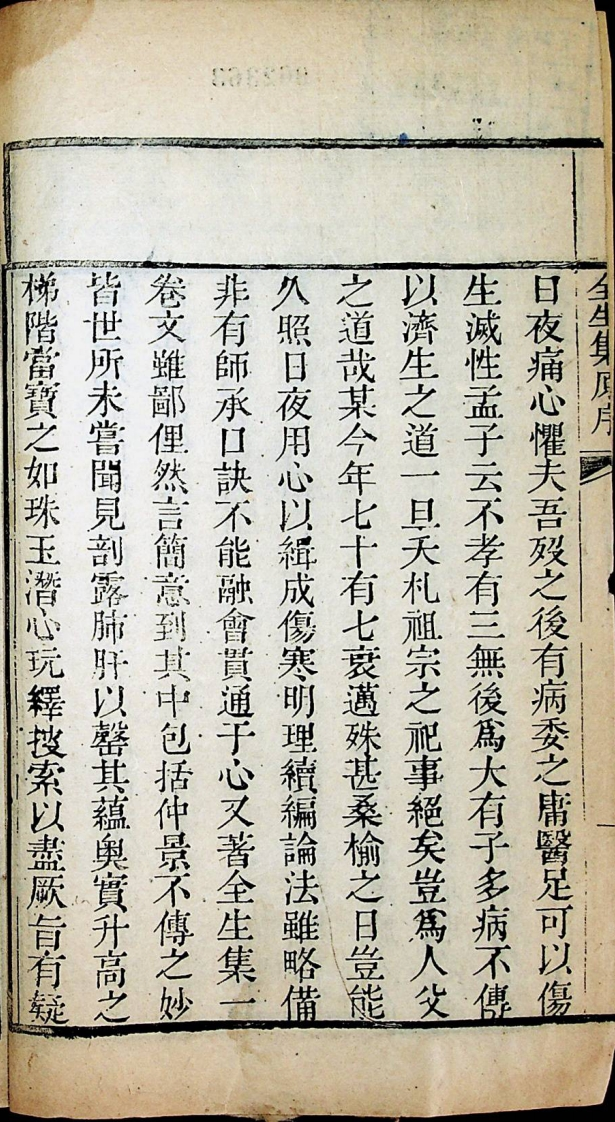 全生集原序
日夜痛心懼夫吾歿之後有病委之庸醫足可以傷
生滅性孟子云不孝有三無後爲大有子多病不傳
以濟生之道一旦夭札祖宗之祀事絕矣豈爲人父
之道哉某今年七十有七衰邁殊甚桑榆之日豈能
久照日夜用心以緝成傷寒明理續編論法雖略備
非有師承口訣不能融會貫通于心又著全生集一
卷文雖鄙俚然言簡意到其中包括仲景不傳之妙
皆世所未嘗聞見剖露肺肝以罄其蘊奧實升高之
梯階當寶之如珠玉潛心玩繹搜索以盡厥旨有疑